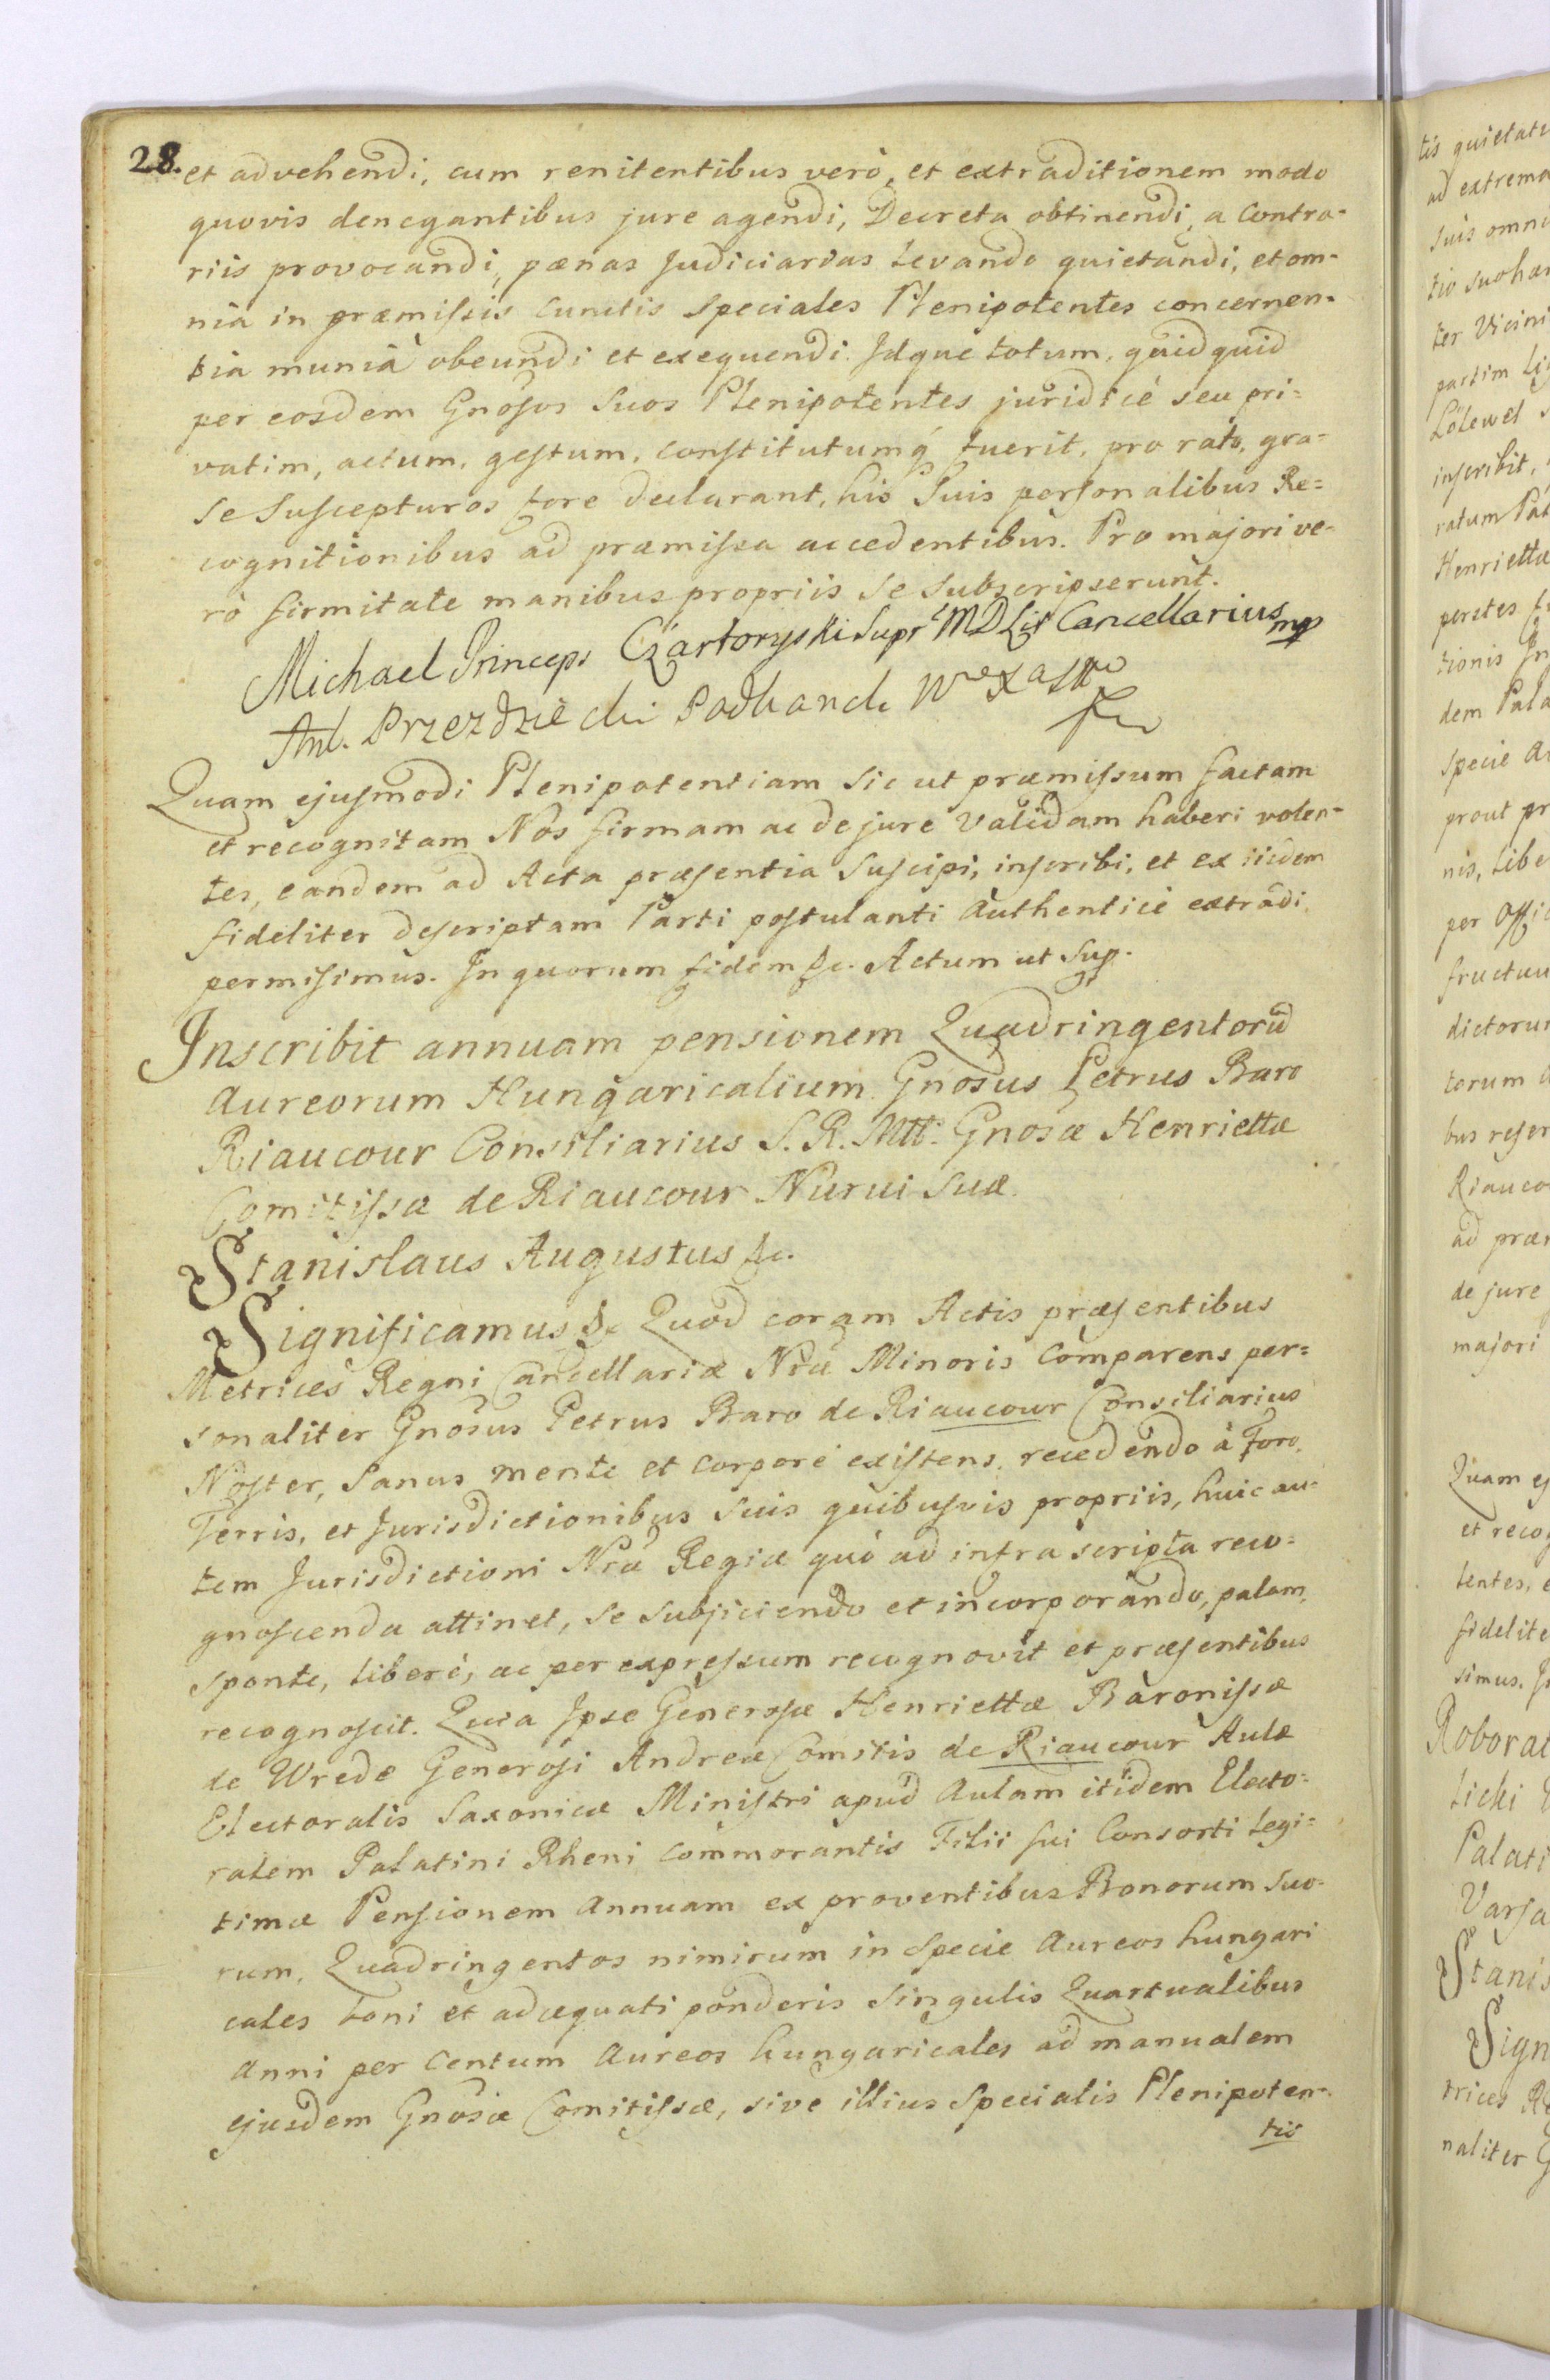 28. et advehendi, cum renitentibus verò, et extraditionem modo
quovis denegantibus jure agendi, Decreta obtinendi, a Contra-
riis provocandi, pænas Judiciarias levando quietandi, et om-
nia in præmissis cunctis speciales Plenipotentes concernen-
tia munia obeundi et exequendi. Idque totum, quidquid
per eosdem Gnosos Suos Plenipotentes juridicè seu pri-
vatim, actum, gestum, constitutumq́ fuerit, pro rato, gra-
se suscepturos fore declarant, his Suis personalibus Re-
cognitionibus ad præmissa accedentibus. Pro majori ve-
rò firmitate manibus propriis se subscripserunt.
Michael Princeps Czartoryski Supr MDLit Cancellarius mp
Ant. Przezdziecki Podkancl. W
Quam ejusmodi Plenipotentiam sic ut præmissum factam
et recognitam Nos firmam ac de jure validam haberi volen-
tes, eandem ad Acta præsentia suscipi, inscribi, et ex iisdem
fideliter descriptam Parti postulanti Authenticè extradi
permisimus. In quorum fidem &c. Actum ut sup.
Inscribit annuam pensionem Quadringentorū
Aureorum Hungaricalium Gnosus Petrus Baro
Riaucour Consiliarius S. R. Mtt: Gnosæ Henriettæ
Comitissæ de Riaucour Nurui Suæ.
Stanislaus Augustus &c.
Significamus &c Quod coram Actis præsentibus
Metrices Regni Cancellariæ Nræ Minoris Comparens per-
sonaliter Gnosus Petrus Baro de Riaucour Consiliarius
Noster, Sanus mente et corpore existens, recedendo à Foro,
Terris, et Jurisdictionibus Suis quibusvis propriis, huic au-
tem Jurisdictioni Nræ Regiæ quò ad infra scripta reco-
gnoscenda attinet, se subjiciendo et incorporando, palam,
sponte, liberè, ac per expressum recognovit et præsentibus
recognoscit. Quia Ipse Generosæ Henriettæ Baronissæ
de Wrede Generosi Andreæ Comitis de Riaucour Aulæ
Electoralis Saxonicæ Ministri apud Aulam itidem Electo-
ralem Palatini Rheni commorantis Filii sui Consorti legi-
timæ Pensionem Annuam ex proventibus Bonorum Suo-
rum, Quadringentos nimirum in specie Aureos hungari
cales boni et adæquati ponderis singulis Quartualibus
Anni per Centum Aureos hungaricales ad manualem
ejusdem Gnosæ Comitissæ, sive illius Specialis Plenipoten-
tis
tis quietat
ad extrema
suis omni
ter Vicini
partim
Lölewel
inscribit,
ratum
Henriettæ
tionis In
dem Pala
specie A
prout pr
nis, libe
per Offic
fructuu
dictorum
torum
bus reser
Riauco
ad præ
de jure
majori
Quam ej
et recog
lentes, e
fidelite
simus. I
Roborat
Palati
Varsa
Stanis
Sign
trices Re
naliter G